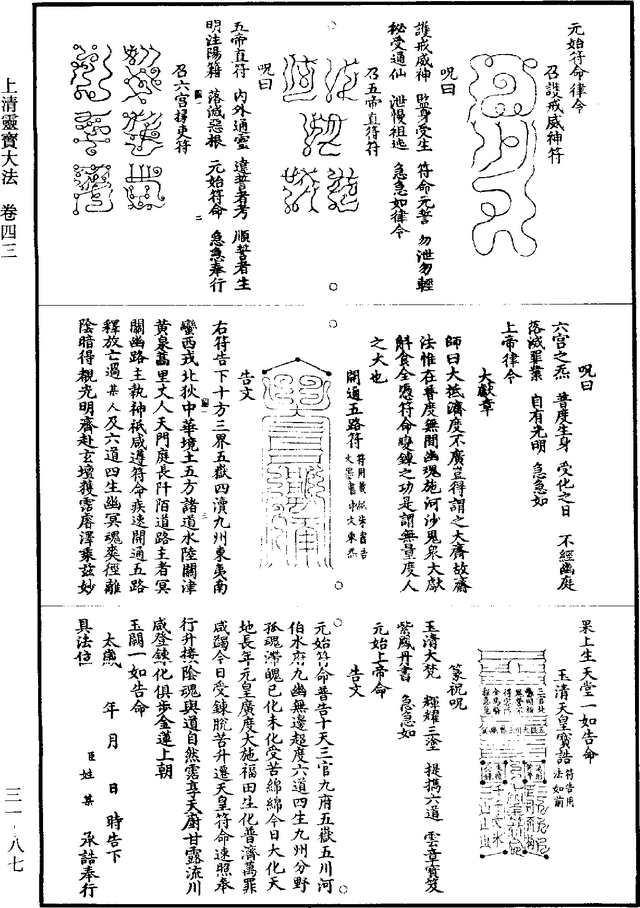 元始符命律令
召護戒威神符
呪曰
護戒威神　監身受生　符命元誓　勿泄勿輕
秘受通仙　泄慢祖逃　急急如律令
召五帝直符符
呪曰
五帝直符　内外通靈　違誓者考　順誓者生
明注陽籍　落滅惡根　元始符命　急急奉行
召六宫掾吏符
呪曰
六宫之炁　普度生身　受化之日　不經幽庭
落滅罪業　自有光明　急急如
上帝律令
大獻章
師曰大抵濟度不廣豈得謂之大齋故齋
法惟在普度無間幽魂施河沙鬼衆大獻
斛食全憑符命變鍊之功是謂無量度人
之大也
開通五路符
告文
右符告下十方三界五嶽四瀆九州東夷南
蠻西戎北狄中華境土五方諸道水陸關津
黄泉萬里丈人天門庭長阡陌道路主者冥
關幽路主執神祇咸遵符命疾速開通五路
釋放亡過某人及六道四生幽冥魂爽徑離
陰暗得覩光明齊赴玄壇獲霑睿澤乘兹妙
果上生天堂一如告命
玉清天皇寶誥 符告用法如前
篆祝呪
玉清大梵　輝耀三塗　提攜六道　雲章寶笈
紫鳳丹書　急急如
元始上帝命
告文
元始符命普告十天三官九府五嶽五川河
伯水府九幽無邊超度六道四生九州分野
孤魂滯魄已化未化受苦綿綿今日大化天
地長年元皇廣度大施福田生化普濟萬罪
咸蠲今日受鍊脱苦升遷天皇符命速照奉
行升接陰魂與道自然霑享天廚甘露流川
咸登鍊化俱步金蓮上朝
玉闕一如告命
太歲　年　月　日　時告下
具法位　臣姓某　承誥奉行
上清靈寶大法　卷四三
三一－八七